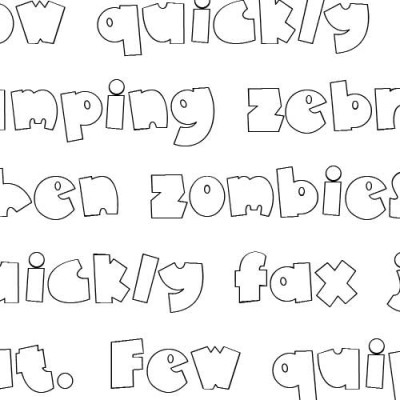 ow quickly
umping zebr
hen zombies
uickly fax j
ut. Few quip